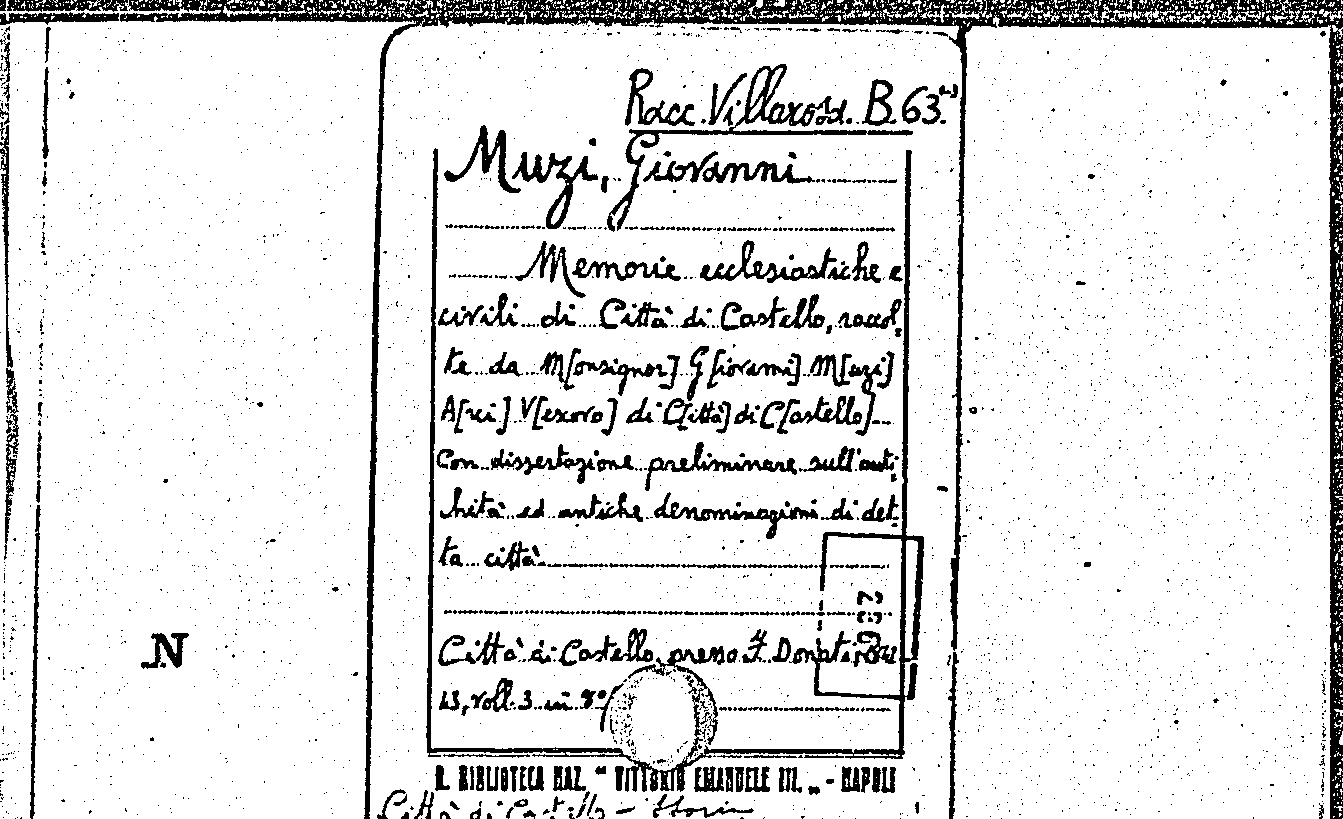 Racc. Villarosa. B. 63.
Muzi, Giovanni
Memorie ecclesiastiche e
civili di Città di Castello, raccol-
te da M[onsignor] G[iovanni] M[uzi]
A[rci] V[escovo] di C[ittà] di C[astello]
Con dissertazione preliminare sull'anti-
chità ed antiche denominazioni di det-
ta città.
Città di Castello, presso F. Donati,
43, voll. 3 in 8°
R. BIBLIOTECA NAZ. "VITTORIO EMANUELE III." - NAPOLI
Città di Castello - Storia
N